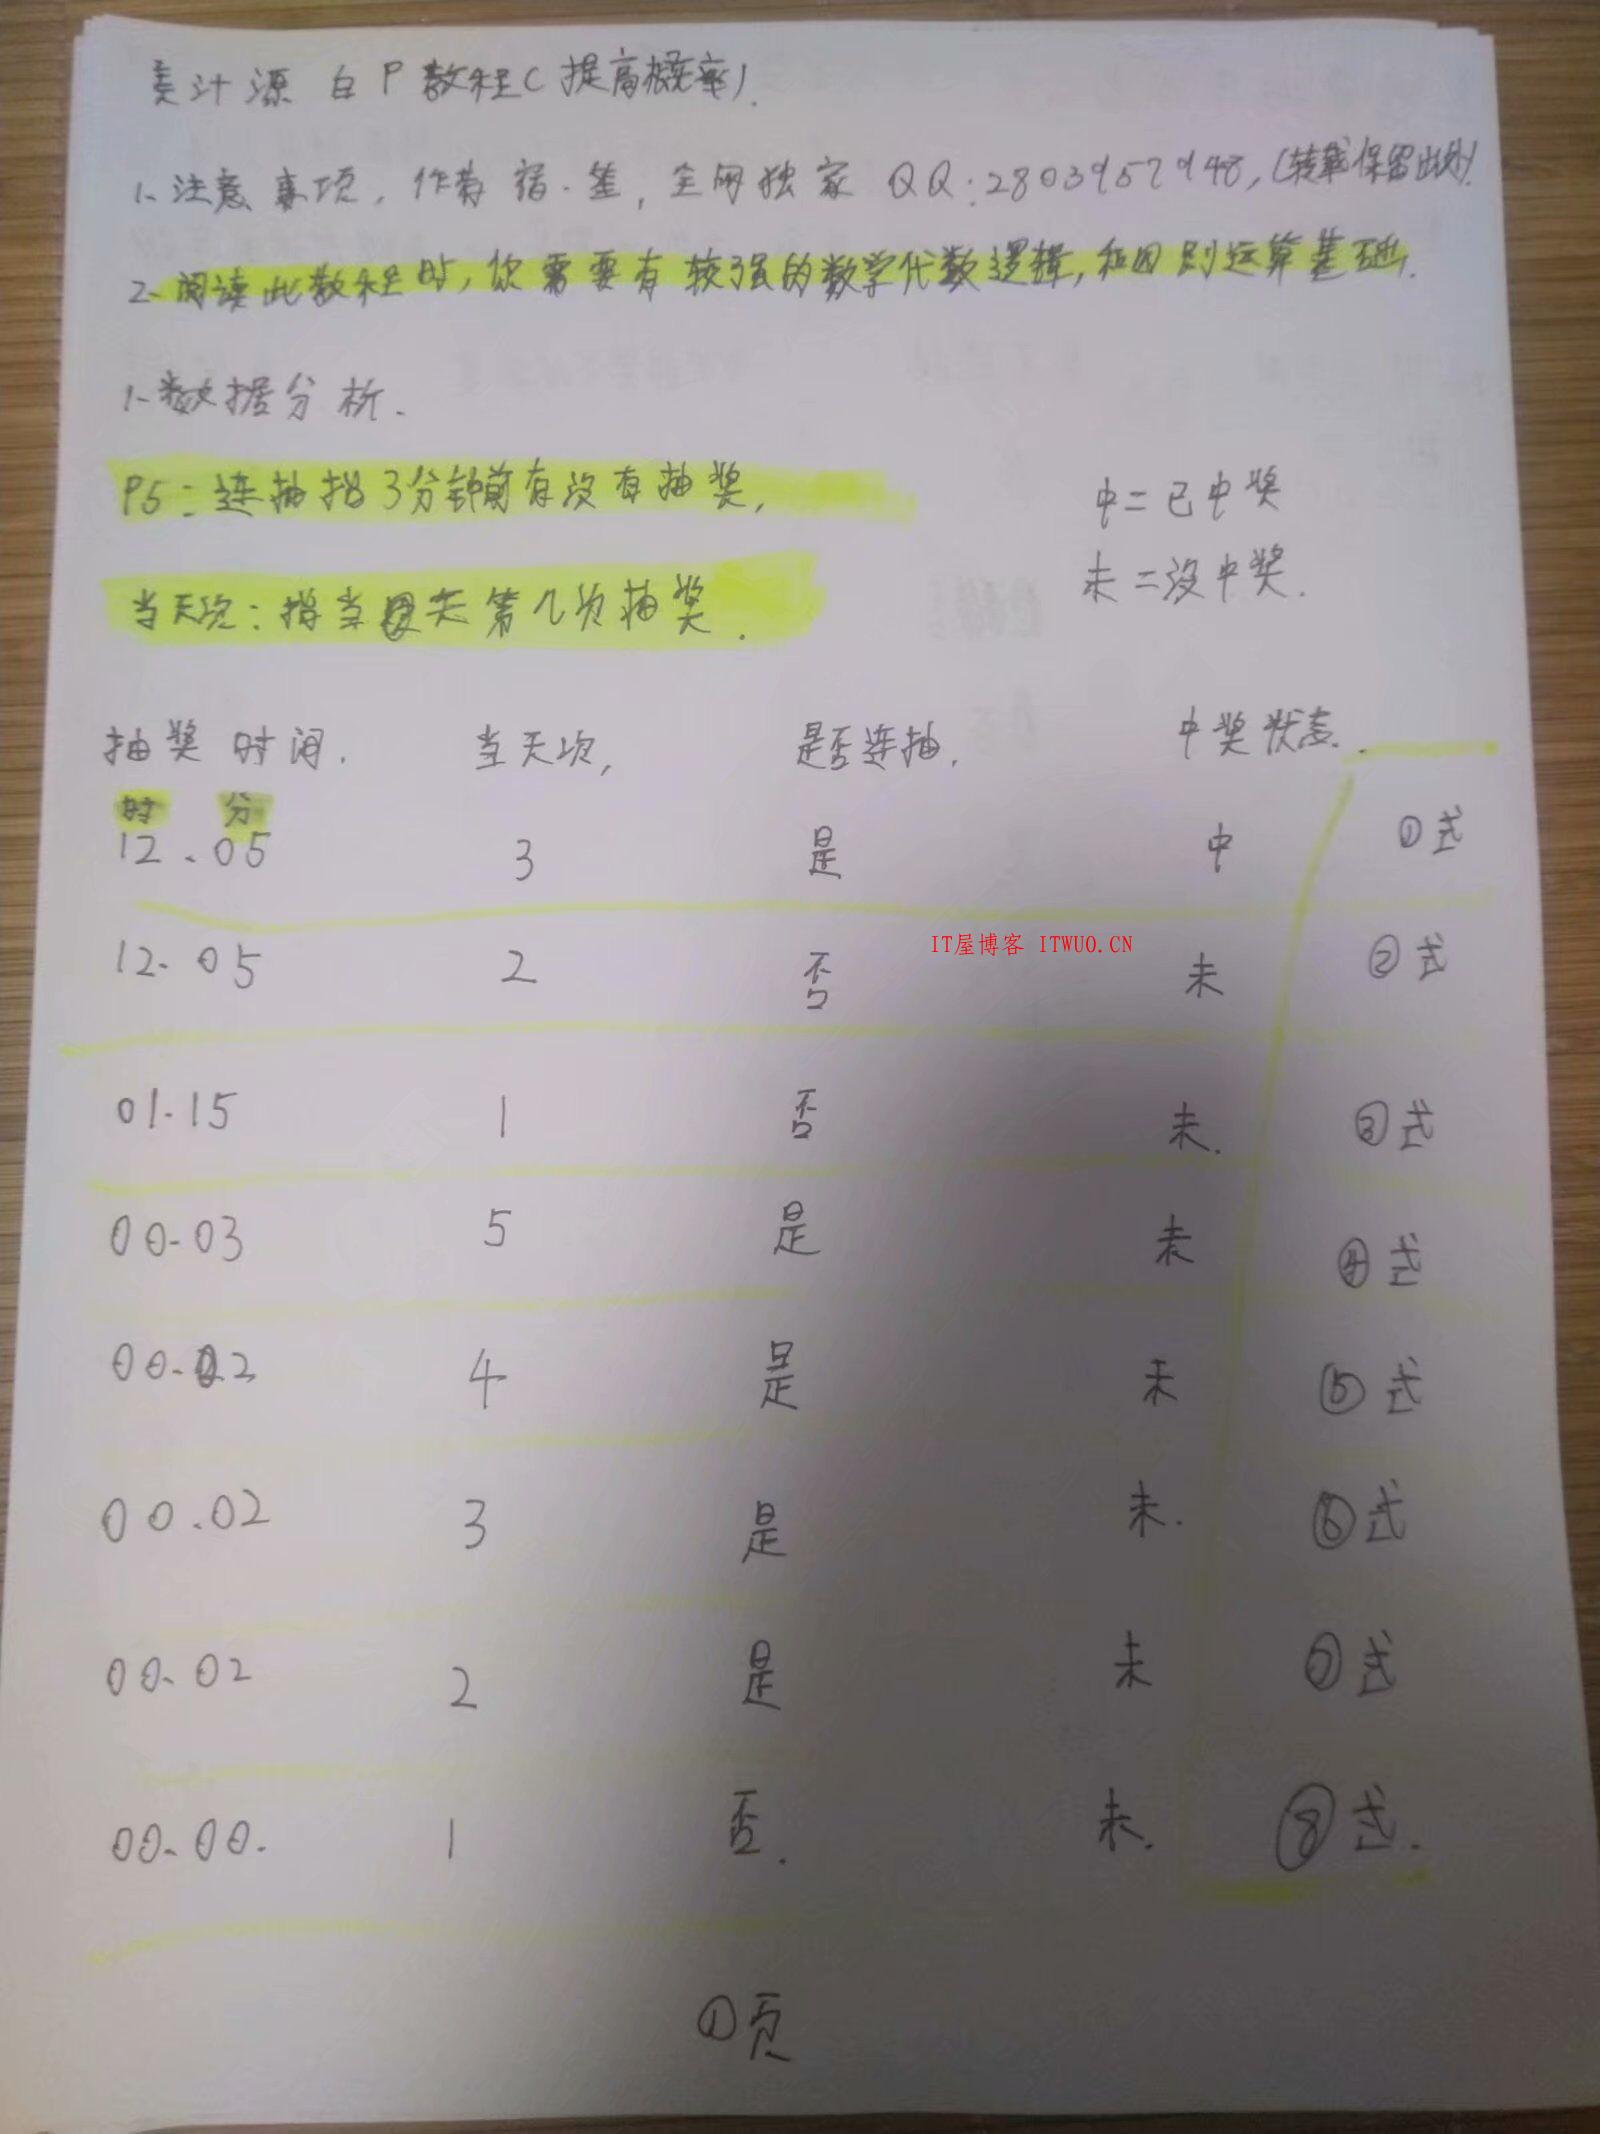 美汁源 白P教程(提高概率).
1、注意事项,作者宿·笙,全网独家 QQ:2803957948,(转载保留出处).
2、阅读此教程时,你需要有较强的数学代数逻辑,和四则运算基础.
1、数据分析.
PS:连抽指3分钟前有没有抽奖,
中=已中奖
未=没中奖.
当天次:指当天第几次抽奖.
抽奖时间. 当天次, 是否连抽. 中奖状态.
时 分
12.05 3 是 中 ①式
IT屋博客 ITWUO.CN
12.05 2 否 未 ②式
01.15 1 否 未. ③式
00.03 5 是 未 ④式
00.02 4 是 未 ⑤式
00.02 3 是 未. ⑥式
00.02 2 是 未 ⑦式
00.00. 1 否. 未. ⑧式.
①页